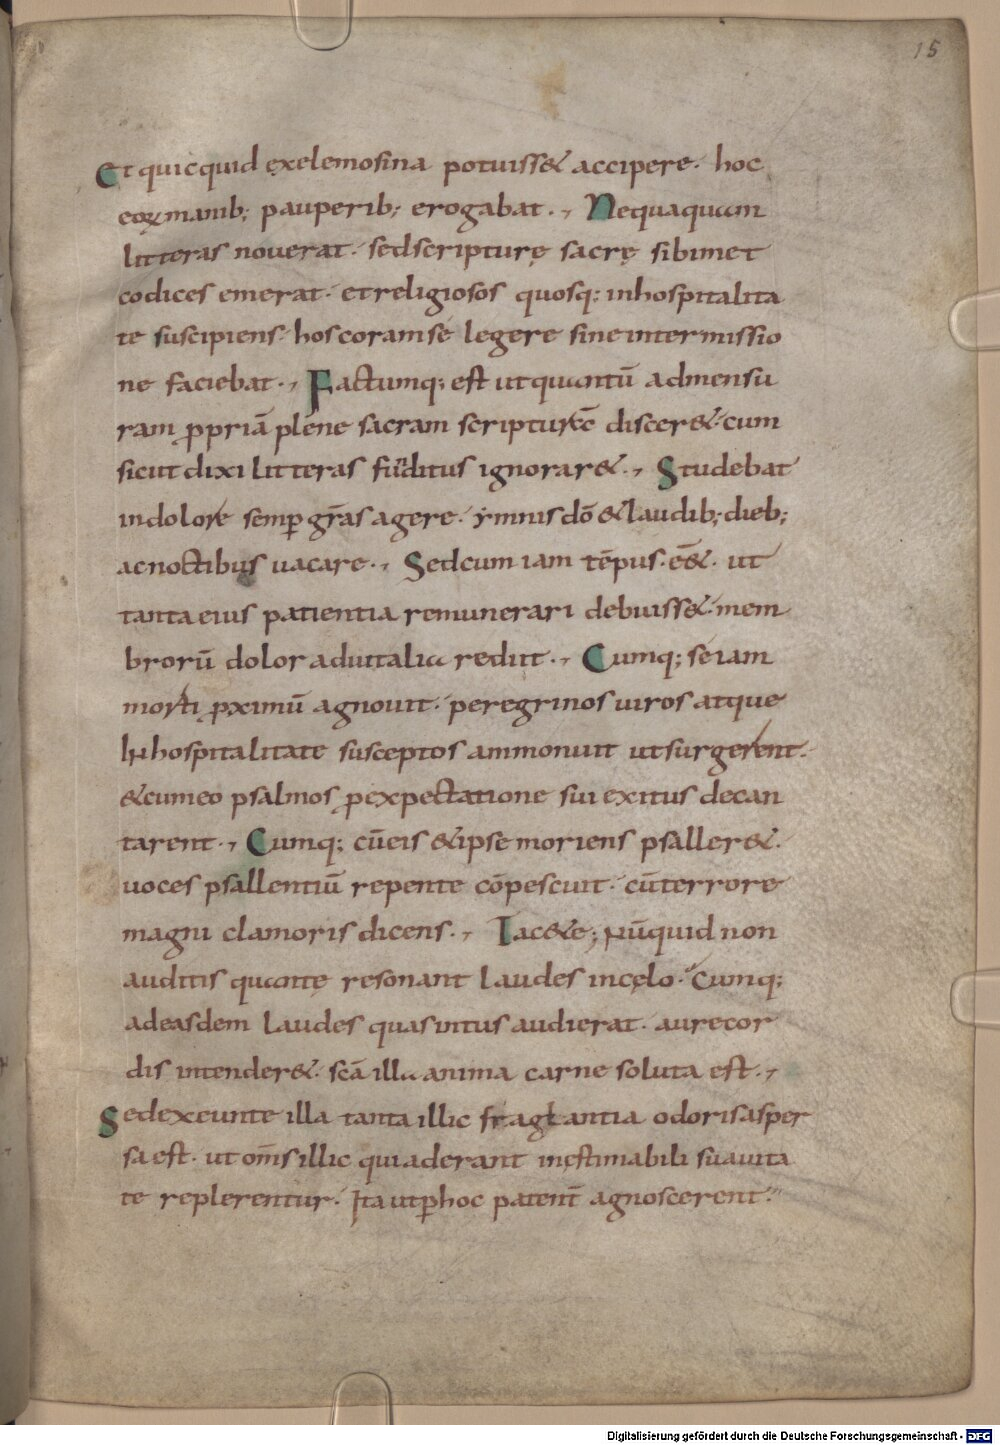 15
Et quicquid exelemosina potuiss& accipere· hoc
eoꝝ manib; pauperib; erogabat·, Nequaquam
litteras nouerat· sedscripturę sacrę sibimet
codices emerat· et religiosos quosq; inhospitalita
te suscipiens· hos coramse legere sine intermissio
ne faciebat·, Factumq; est ut quantū admensu
ram ꝓpriā plene sacram scripturā discer& cum
sicut dixi litteras funditus ignorar&·, Studebat
indolore semꝑ gr̄as agere· ẏmnis dō & laudib; dieb;
ac noctibus uacare·, Sed cum iam tēpus· eē&· ut
tanta eius patientia remunerari debuiss&· mem
brorū dolor aduitalia rediit·, Cumq; se iam
morti ꝓximū agnouit· peregrinos uiros atque
in hospitalitate susceptos ammonuit ut surgerent·
& cum eo psalmos ꝓ expectatione sui exitus decan
tarent·, Cumq; cū eis & ipse moriens psaller&·
uoces psallentiū repente cōpescuit· cū terrore
magni clamoris dicens·, Iac&e; nūquid non
auditis quantę resonant laudes incęlo· Cumq;
adeasdem laudes quas intus audierat· aure cor
dis intender&· scā illa anima carne soluta est·,
Sed exeunte illa tanta illic fragrantia odoris asper
sa est· ut om̄s illic qui aderant inęstimabili suauita
te replerentur· Ita ut ꝑ hoc patent̄ agnoscerent·
Digitalisierung gefördert durch die Deutsche Forschungsgemeinschaft - DFG